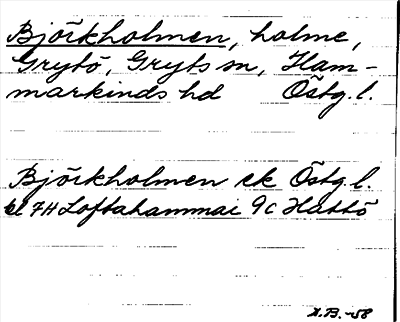 Björkholmen, holme,
Grytö, Gryts sn, Ham-
markinds hd Östg. l.
Björkholmen ek Östg. l.
bl 7H Loftahammar 9c Hattö
X.B. -58